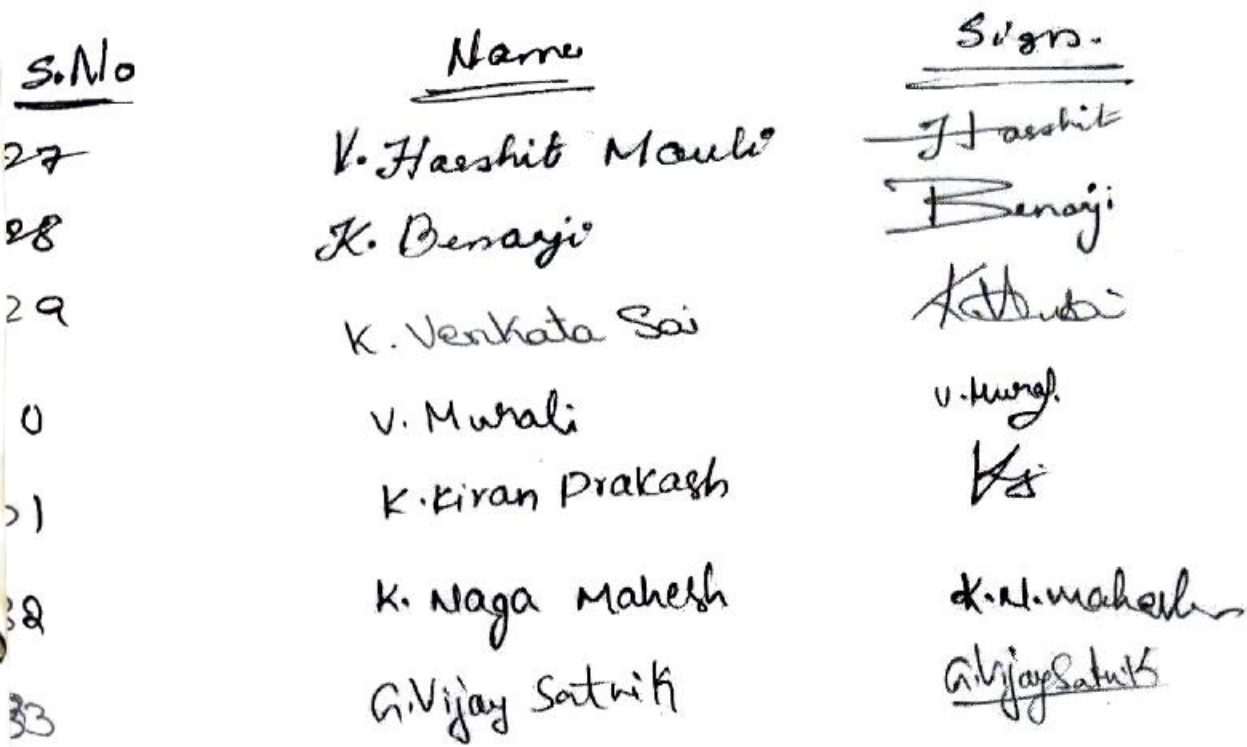 S.No Name Sign.
27 V. Harshit Mouli Harshit
28 K. Benarji Benarji
29 K. Venkata Sai
0 V. Murali V. Murali
1 K. Kiran Prakash
32 K. Naga Mahesh K.N. Mahesh
33 G. Vijay Satwik G. Vijay Satwik